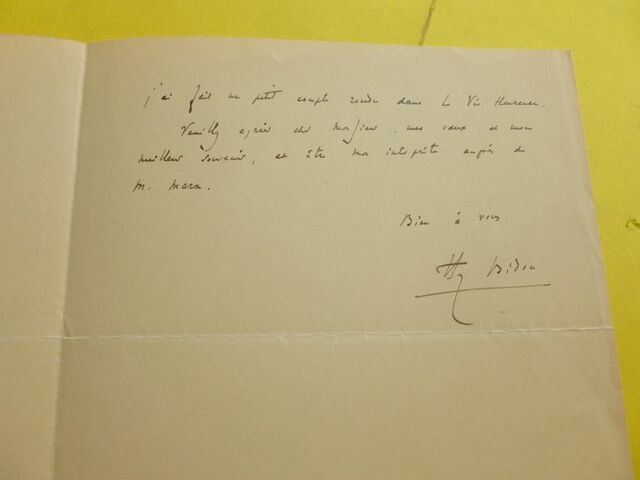 j'ai fait un petit compte rendu dans la Vie Heureuse.
Veuillez agréer cher Monsieur, mes vœux et mon
meilleur souvenir, et être mon interprète auprès de
M. Marx.
Bien à vous
Hy Bidou